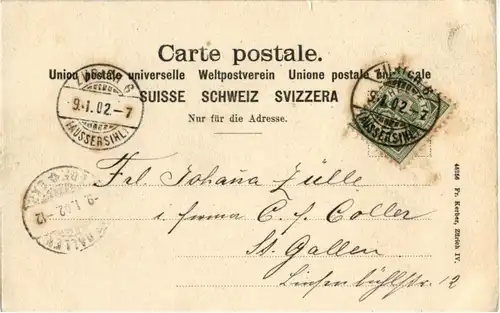 Carte postale.
Union postale universelle Weltpostverein Unione postale universale
SUISSE SCHWEIZ SVIZZERA
Nur für die Adresse.
ZÜRICH 6
9.I.02.-7
(AUSSERSIHL)
ZÜRICH 6
9.I.02.-7
(AUSSERSIHL)
ST. GALLEN
-9.I.02.-12
Frl. Johana Zülle
i. firma C. F. Coller
St. Gallen
Linsenbühlstr. 12
46256 Fr. Kerber, Zürich IV.